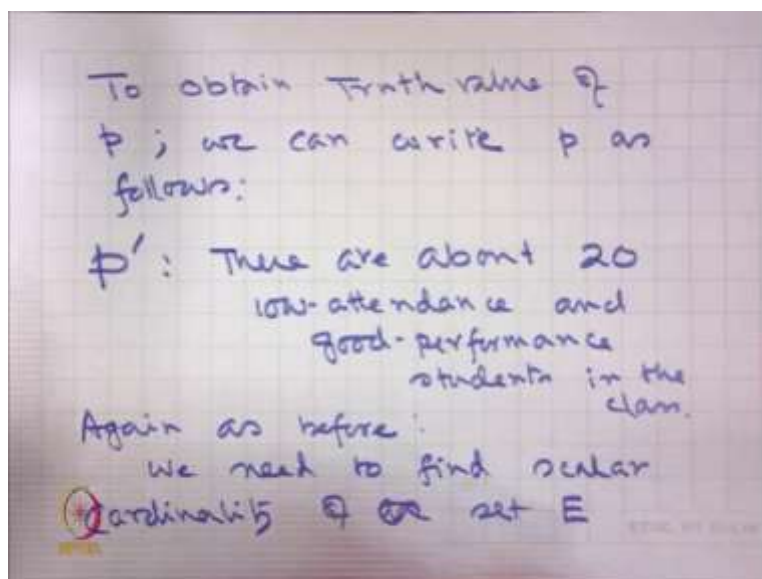 To obtain Truth value of
p ; we can write p as
follows:
p′ : There are about 20
low-attendance and
good-performance
students in the
class.
Again as before:
We need to find scalar
Cardinality of set E